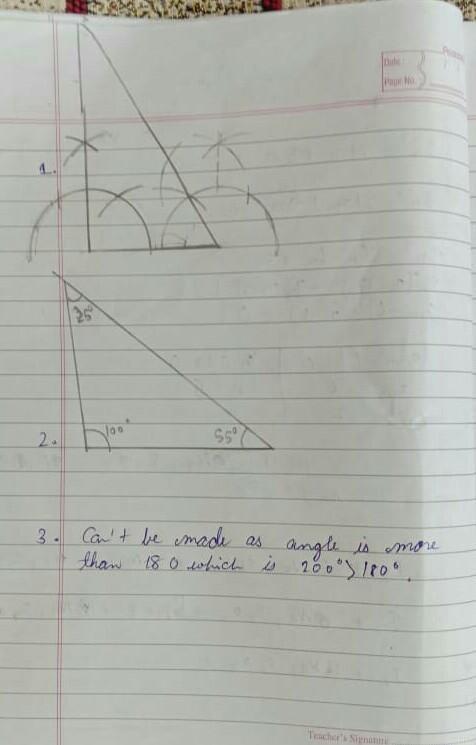 Date :
Page No.
1.
25°
2.
100°
55°
3. Can't be made as angle is more
than 180 which is 200°>180°.
Teacher's Signature